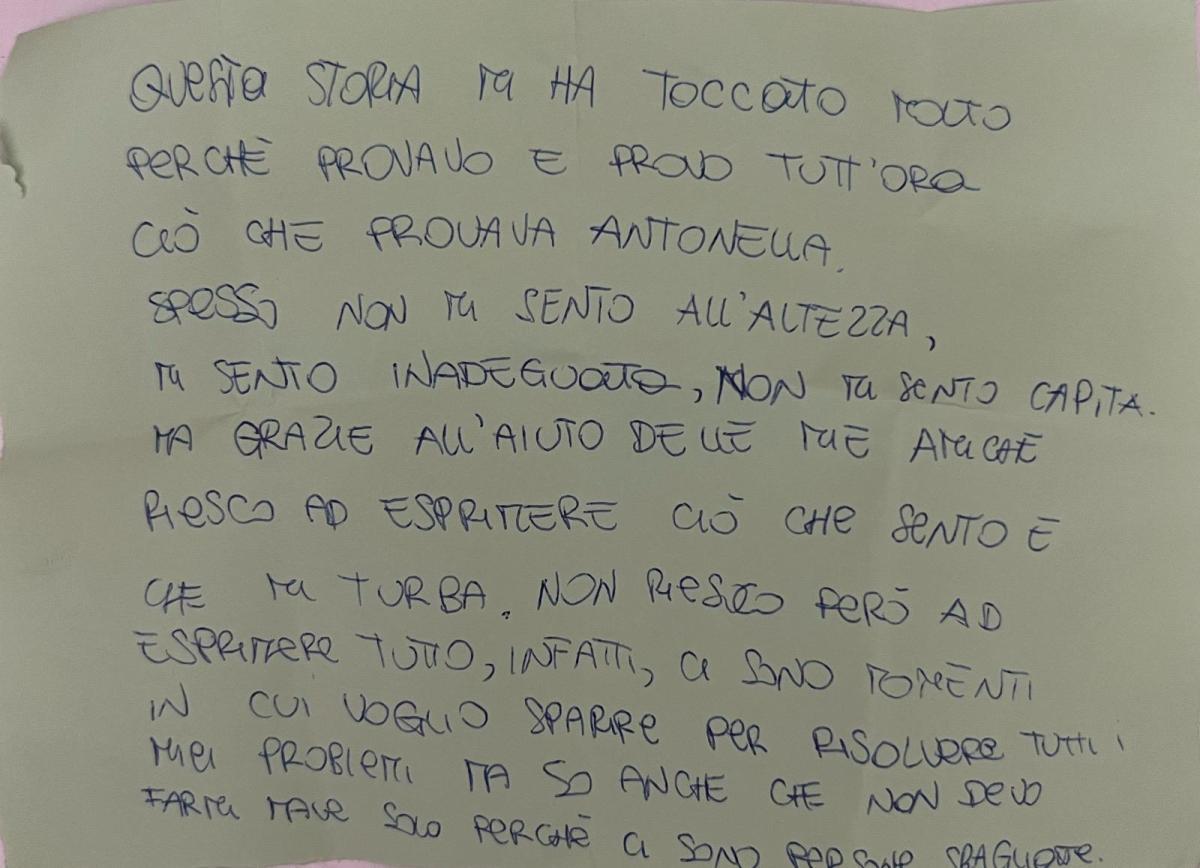 QUESTA STORIA MI HA TOCCATO MOLTO
PERCHÈ PROVAVO E PROVO TUTT'ORA
CIÒ CHE PROVAVA ANTONELLA.
SPESSO NON MI SENTO ALL'ALTEZZA,
MI SENTO INADEGUATA, NON MI SENTO CAPITA.
MA GRAZIE ALL'AIUTO DELLE MIE AMICHE
RIESCO AD ESPRIMERE CIÒ CHE SENTO E
CHE MI TURBA. NON RIESCO PERÒ AD
ESPRIMERE TUTTO, INFATTI, CI SONO MOMENTI
IN CUI VOGLIO SPARIRE PER RISOLVERE TUTTI I
MIEI PROBLEMI MA SO ANCHE CHE NON DEVO
FARMI MALE SOLO PERCHÈ CI SONO PERSONE SBAGLIATE.